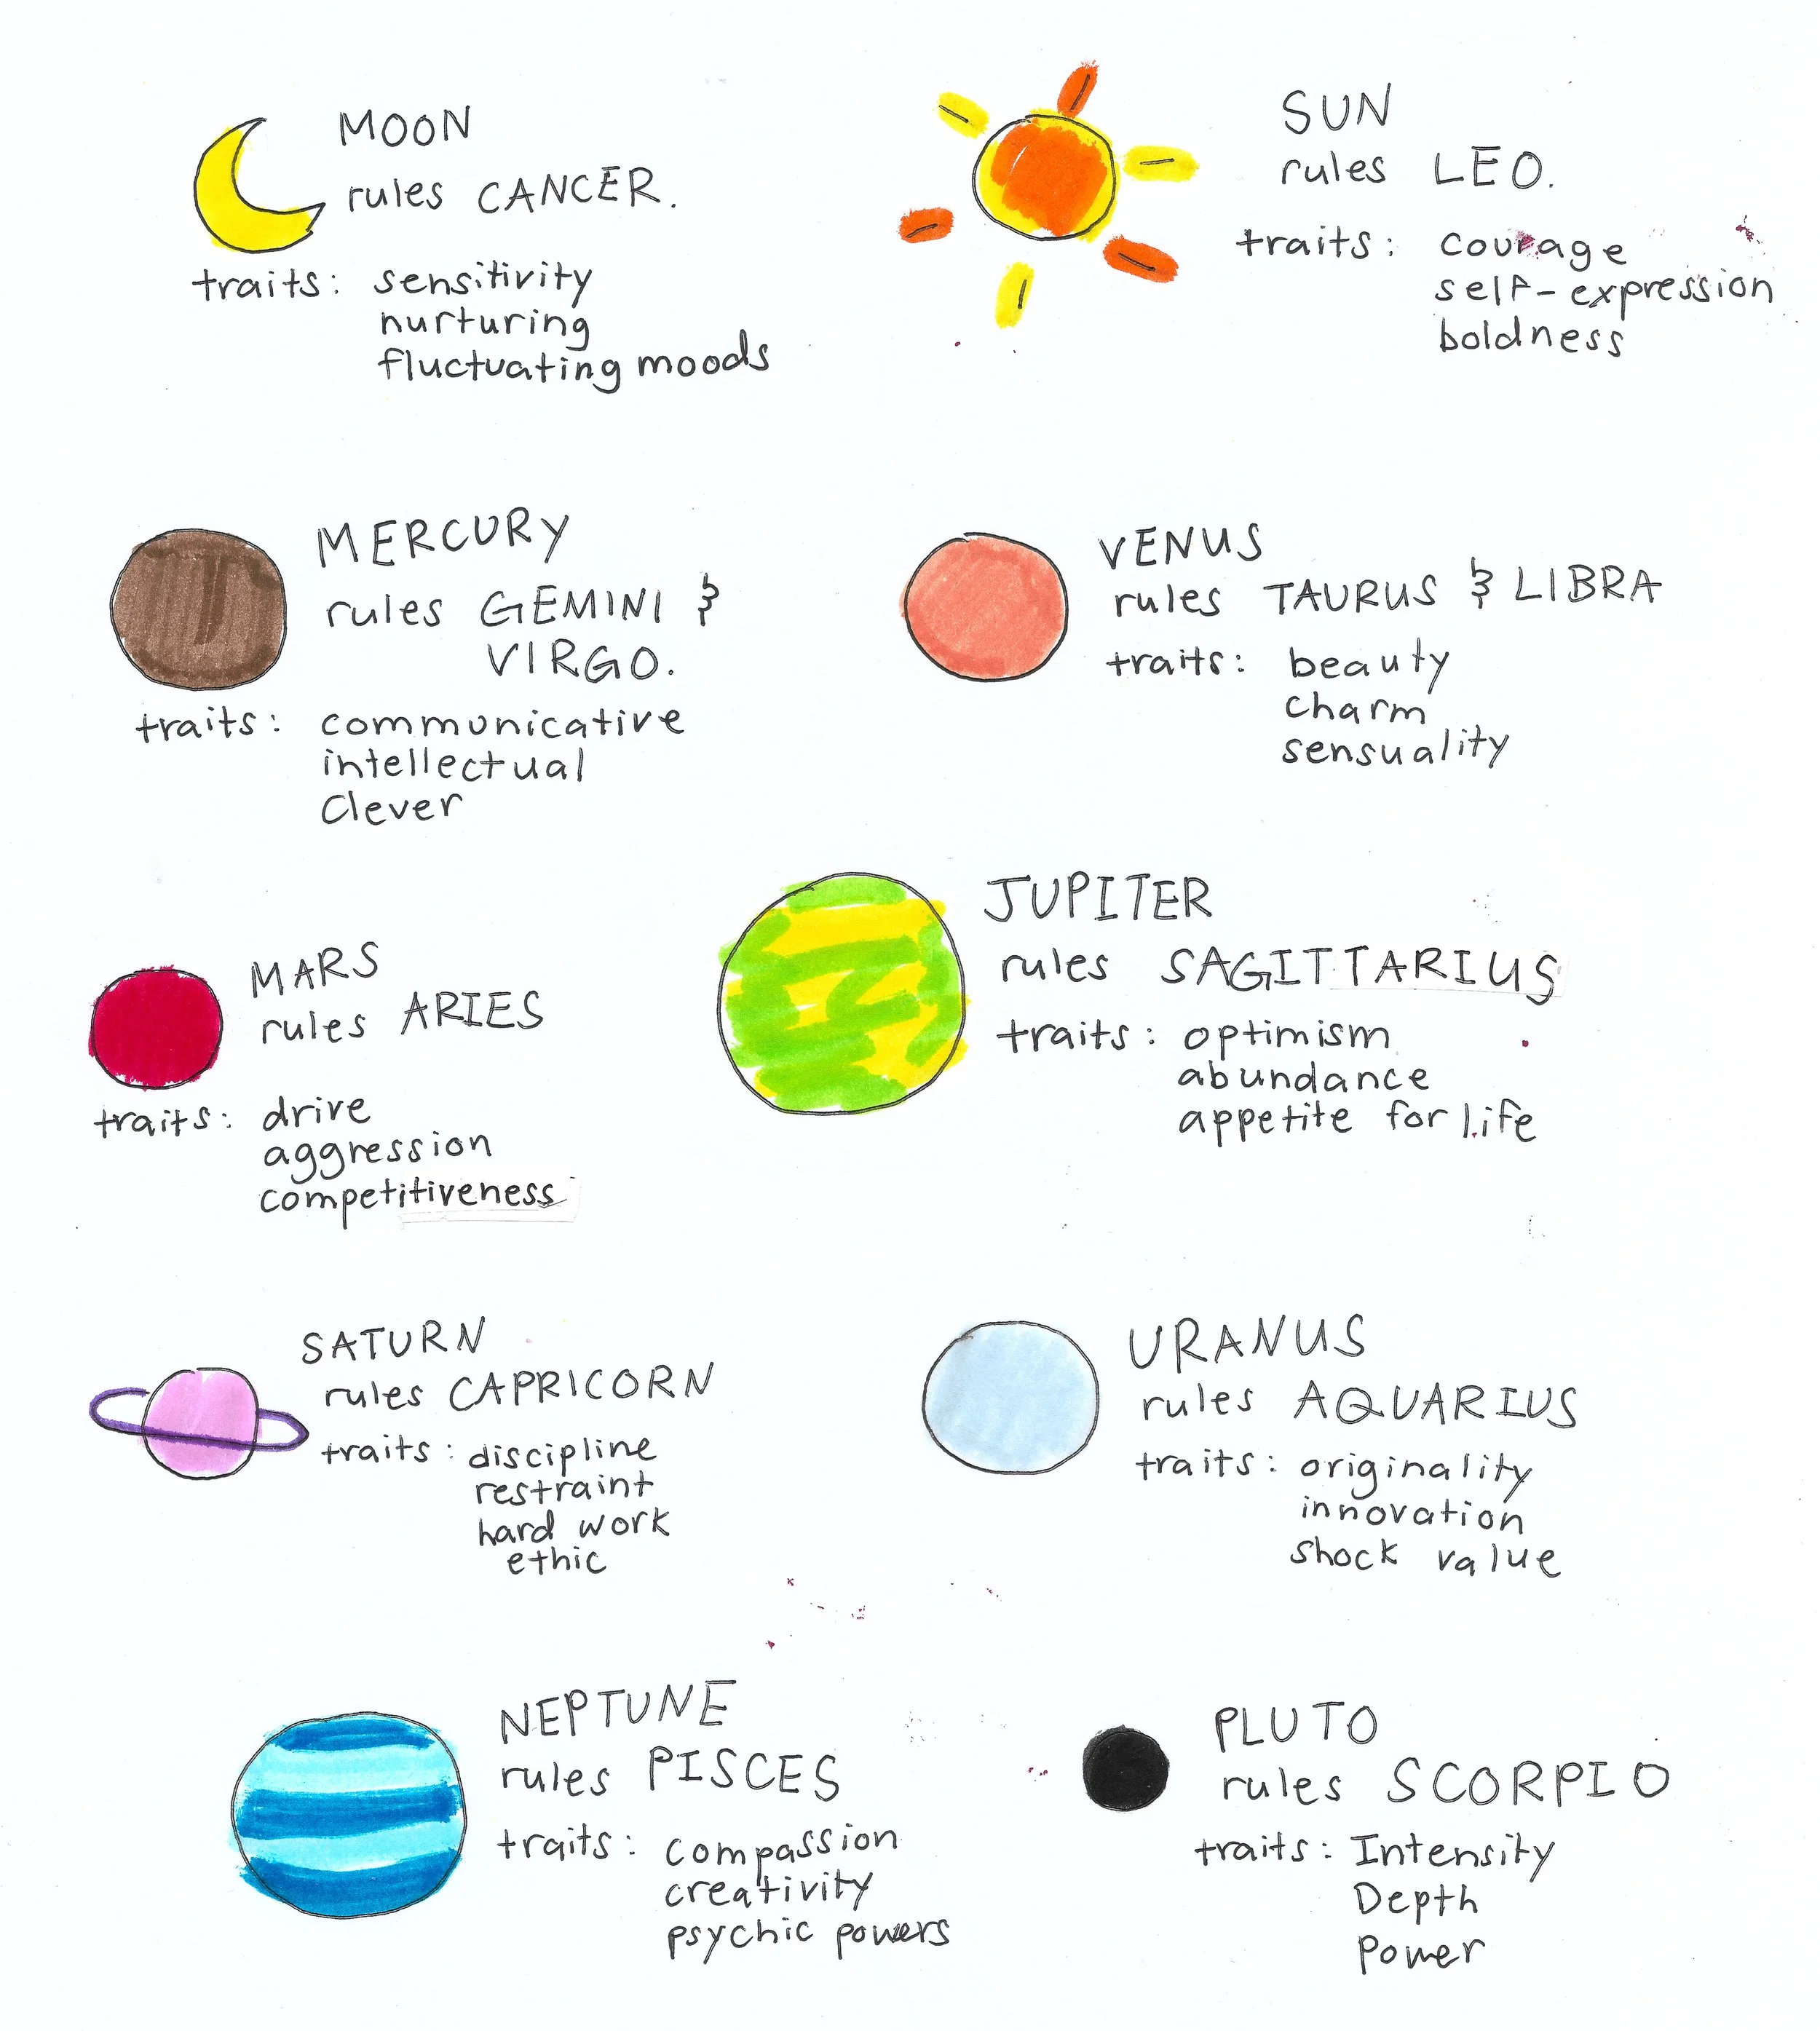 MOON
rules CANCER.
traits: sensitivity
nurturing
fluctuating moods
SUN
rules LEO.
traits: courage
self-expression
boldness
MERCURY
rules GEMINI &
VIRGO.
traits: communicative
intellectual
Clever
VENUS
rules TAURUS & LIBRA
traits: beauty
charm
sensuality
MARS
rules ARIES
traits: drive
aggression
competitiveness
JUPITER
rules SAGITTARIUS
traits: optimism
abundance
appetite for life
SATURN
rules CAPRICORN
traits: discipline
restraint
hard work
ethic
URANUS
rules AQUARIUS
traits: originality
innovation
shock value
NEPTUNE
rules PISCES
traits: compassion
creativity
psychic powers
PLUTO
rules SCORPIO
traits: Intensity
Depth
Power